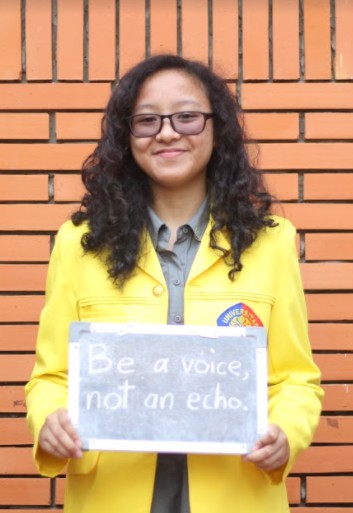 UNIVERSITAS
Be a voice,
not an echo.